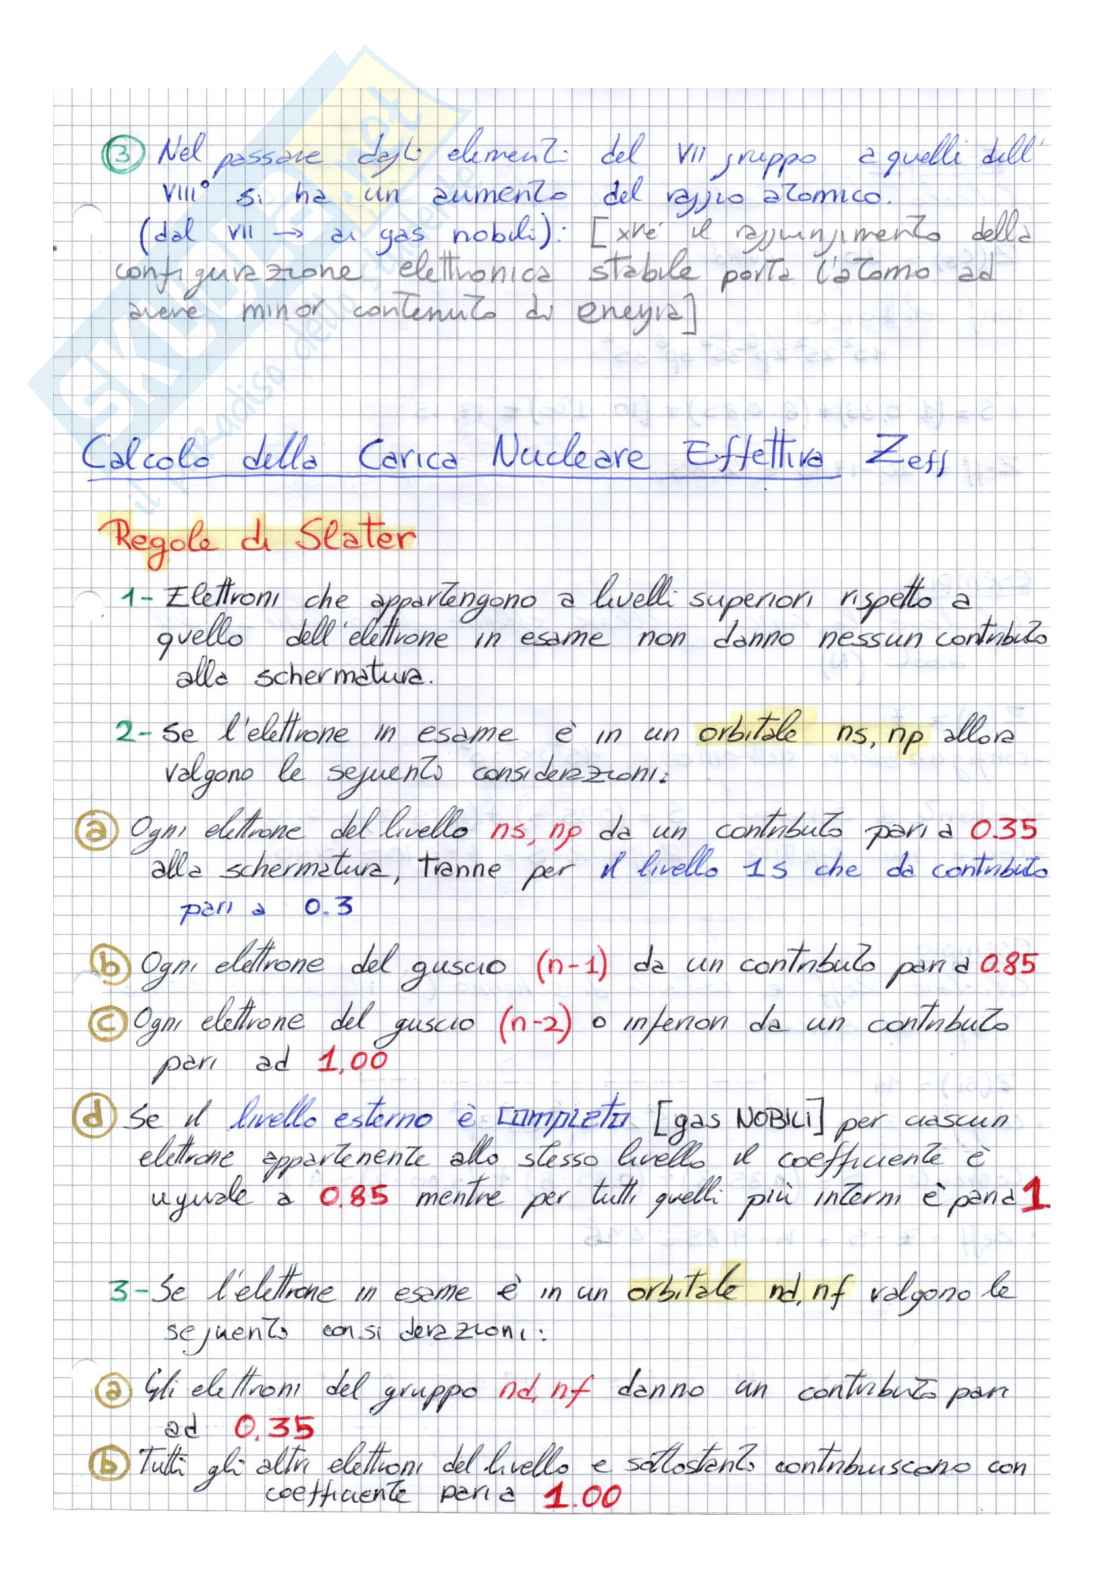 ③ Nel passare dagli elementi del VII gruppo a quelli dell'
VIII° si ha un aumento del raggio atomico.
(dal VII → ai gas nobili): [xké il raggiungimento della
configurazione elettronica stabile porta l'atomo ad
avere minor contenuto di eneyia]
Calcolo della Carica Nucleare Effettiva Zeff
Regole di Slater
1- Elettroni che appartengono a livelli superiori rispetto a
quello dell'elettrone in esame non danno nessun contributo
alla schermatura.
2- Se l'elettrone in esame è in un orbitale ns, np allora
valgono le seguenti considerazioni:
ⓐ Ogni elettrone del livello ns, np da un contributo pari a 0.35
alla schermatura, tranne per il livello 1s che da contributo
pari a 0.3
ⓑ Ogni elettrone del guscio (n-1) da un contributo pari a 0.85
ⓒ Ogni elettrone del guscio (n-2) o inferiori da un contributo
pari ad 1,00
ⓓ Se il livello esterno è completo [gas NOBILI] per ciascun
elettrone appartenente allo stesso livello il coefficiente è
uguale a 0.85 mentre per tutti quelli più interni è pari a 1
3- Se l'elettrone in esame è in un orbitale nd, nf valgono le
seguenti considerazioni:
ⓐ Gli elettroni del gruppo nd, nf danno un contributo pari
ad 0,35
ⓑ Tutti gli altri elettroni del livello e sottostanti contribuiscono con
coefficiente pari a 1.00